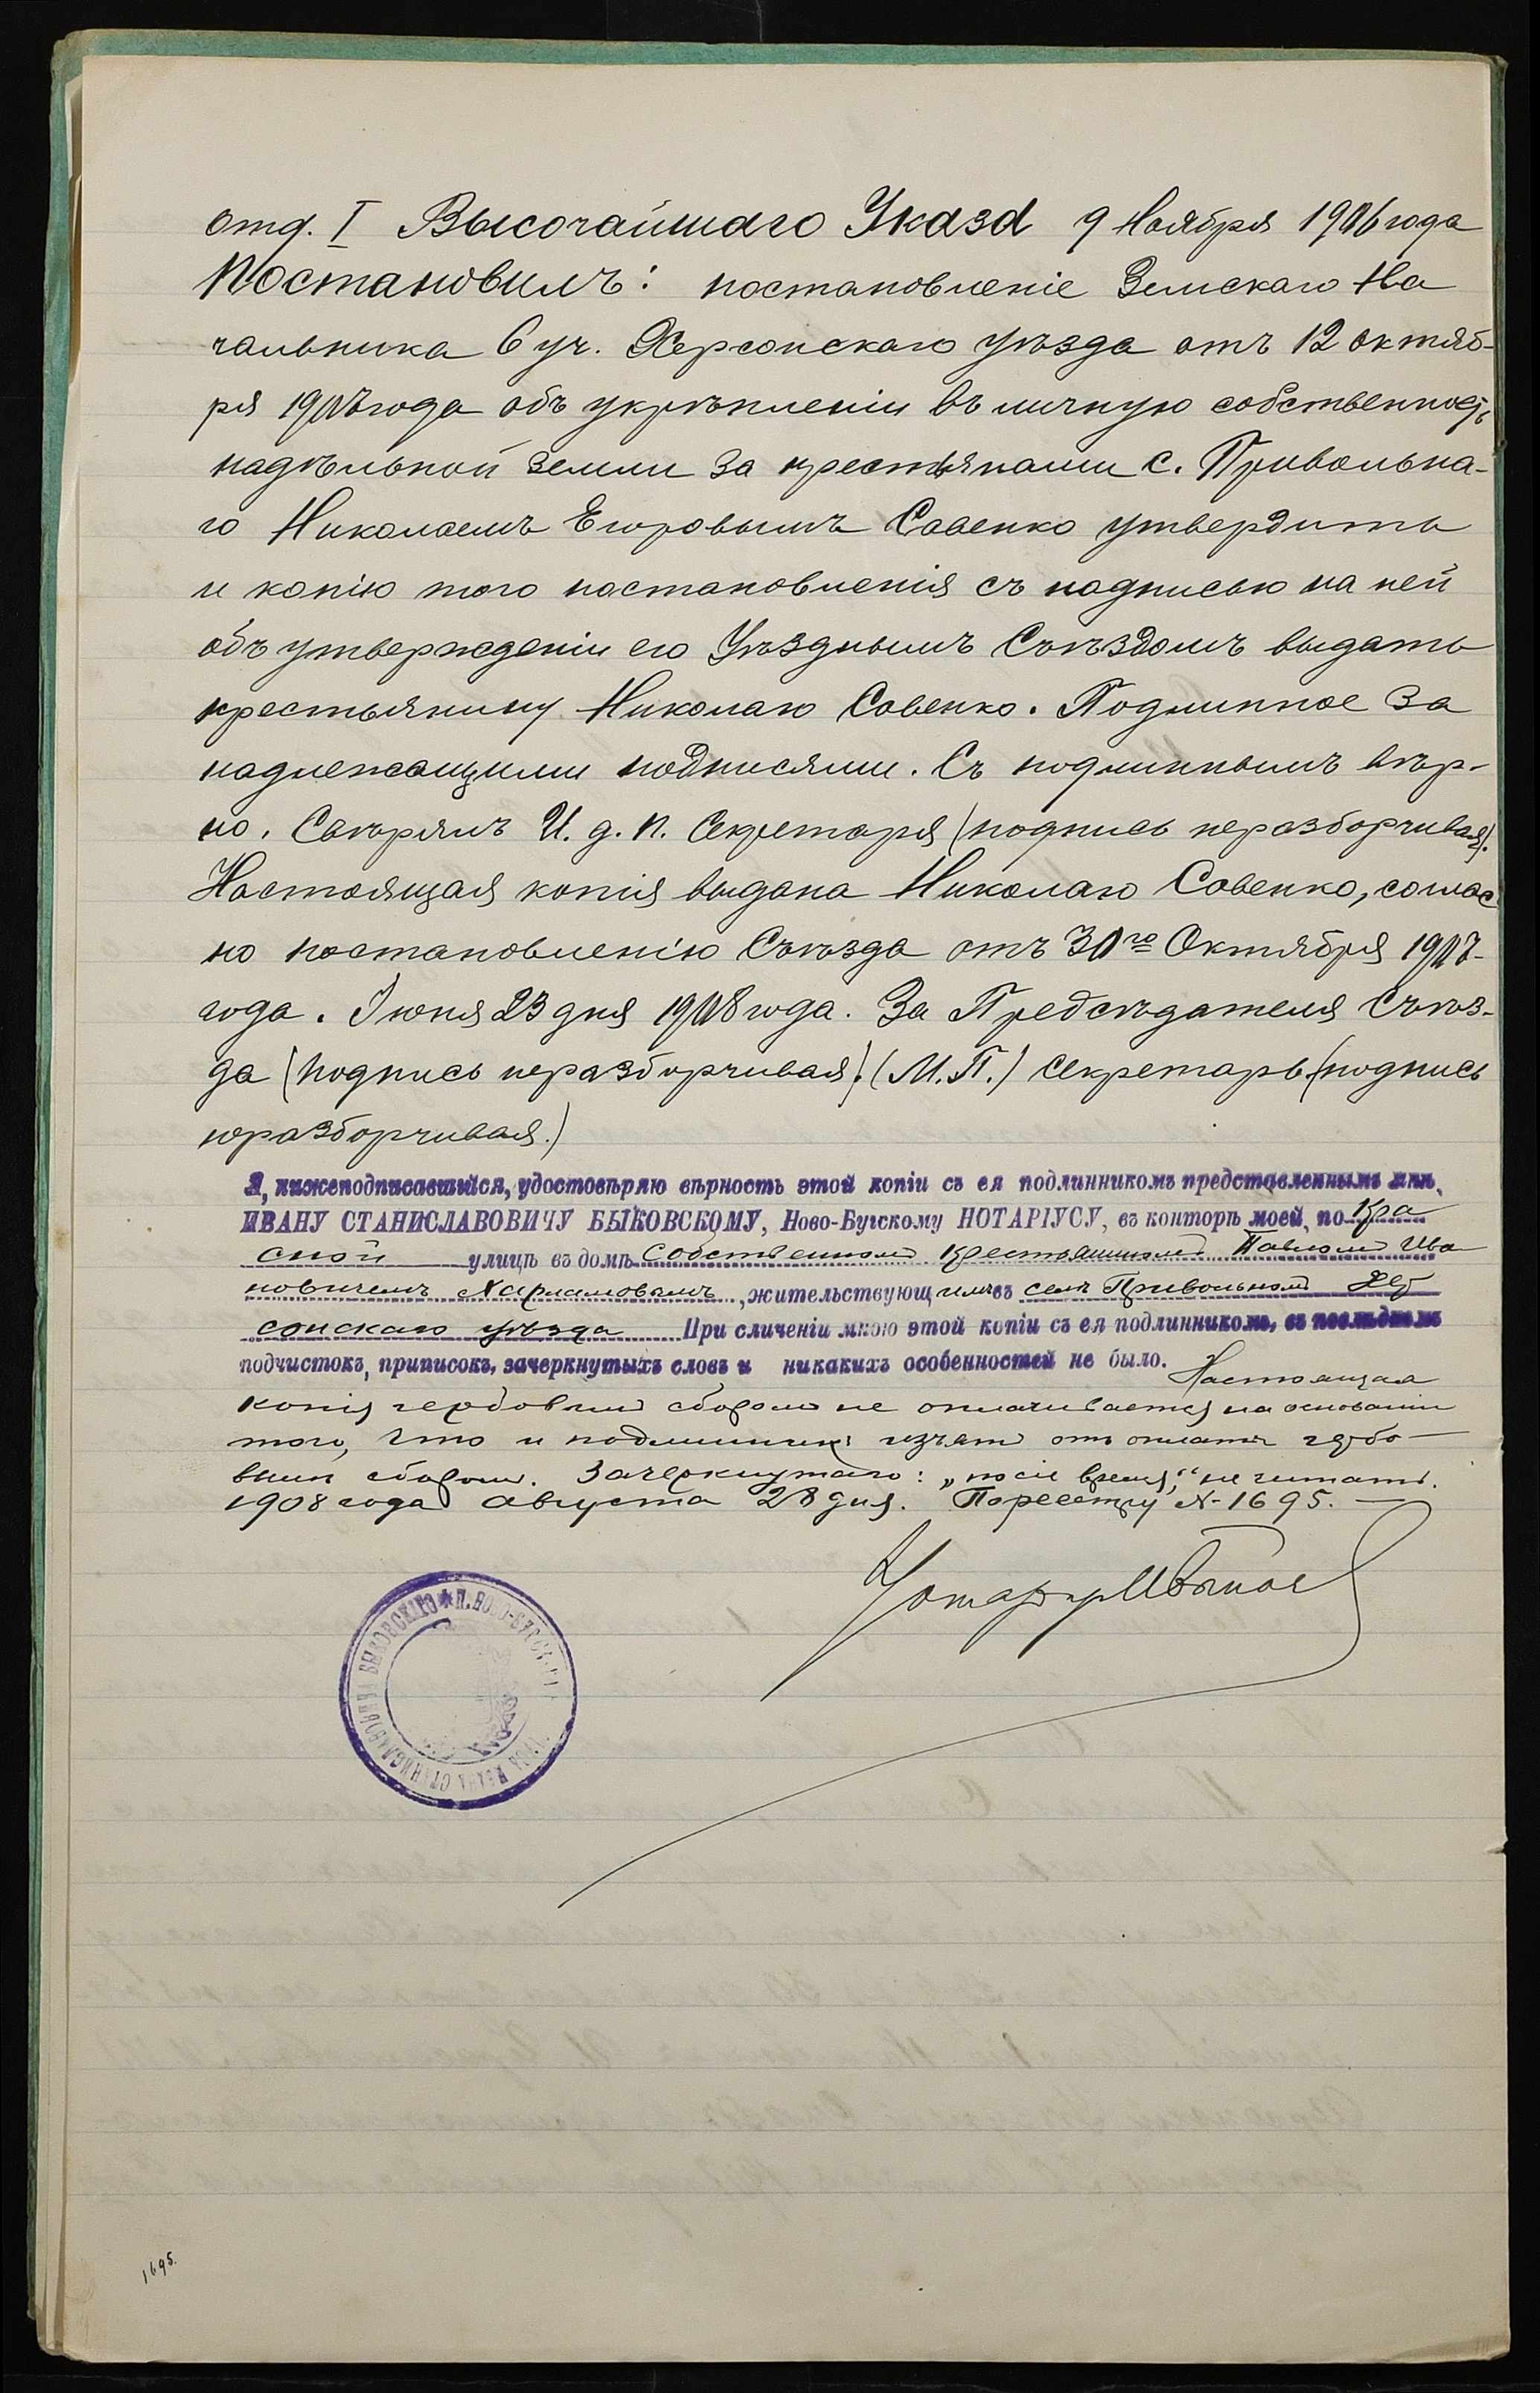 отд. I Высочайшаго Указа 9 Ноября 1906 года
Постановилъ: постановленіе Земскаго На
чальника 6 уч. Херсонскаго уѣзда отъ 12 октяб-
ря 1907 года объ укрѣпленіи въ личную собственность
надѣльной земли за крестьянами с. Привольна-
го Николаемъ Егоровымъ Савенко утвердить
и копію того постановленія съ надписью на ней
объ утвержденіи его Уѣзднымъ Съѣздомъ выдать
крестьянину Николаю Совенко. Подлинное за
надлежащими подписями. Съ подлиннымъ вѣр-
но. Свѣрялъ И. д. п. Секретаря (подпись неразборчивая).
Настоящая копія выдана Николаю Совенко, соглас
но постановленію Съѣзда отъ 30го Октября 1907-
года. Іюня 23 дня 1908 года. За Предсѣдателя Съѣз-
да (подпись неразборчивая). (М.П.) Секретарь (подпись
неразборчивая.)
Я, нижеподписавшійся, удостовѣряю вѣрность этой копіи съ ея подлинникомъ представленнымъ мнѣ,
ИВАНУ СТАНИСЛАВОВИЧУ БЫКОВСКОМУ, Ново-Бугскому НОТАРІУСУ, въ конторѣ моей, по Кра
сной улицѣ въ домѣ собственномъ крестьяниномъ Павломъ Ива
новичемъ Харламовымъ, жительствующимъ въ селѣ Привольномъ Хер
сонскаго уѣзда При сличеніи мною этой копіи съ ея подлинникомъ, въ послѣднемъ
подчистокъ, приписокъ, зачеркнутыхъ словъ и никакихъ особенностей не было. Настоящая
копія гербовымъ сборомъ не оплачивается на основаніи
того, что и подлинникъ изъятъ отъ оплаты гербо-
вымъ сборомъ. Зачеркнутаго: не читать.
1908 года августа 28 дня. По реестру № 1695.
Нотаріусъ
И. СТАНИСЛАВОВИЧА БЫКОВСКАГО * Н. НОВО-БУГСК
1695.